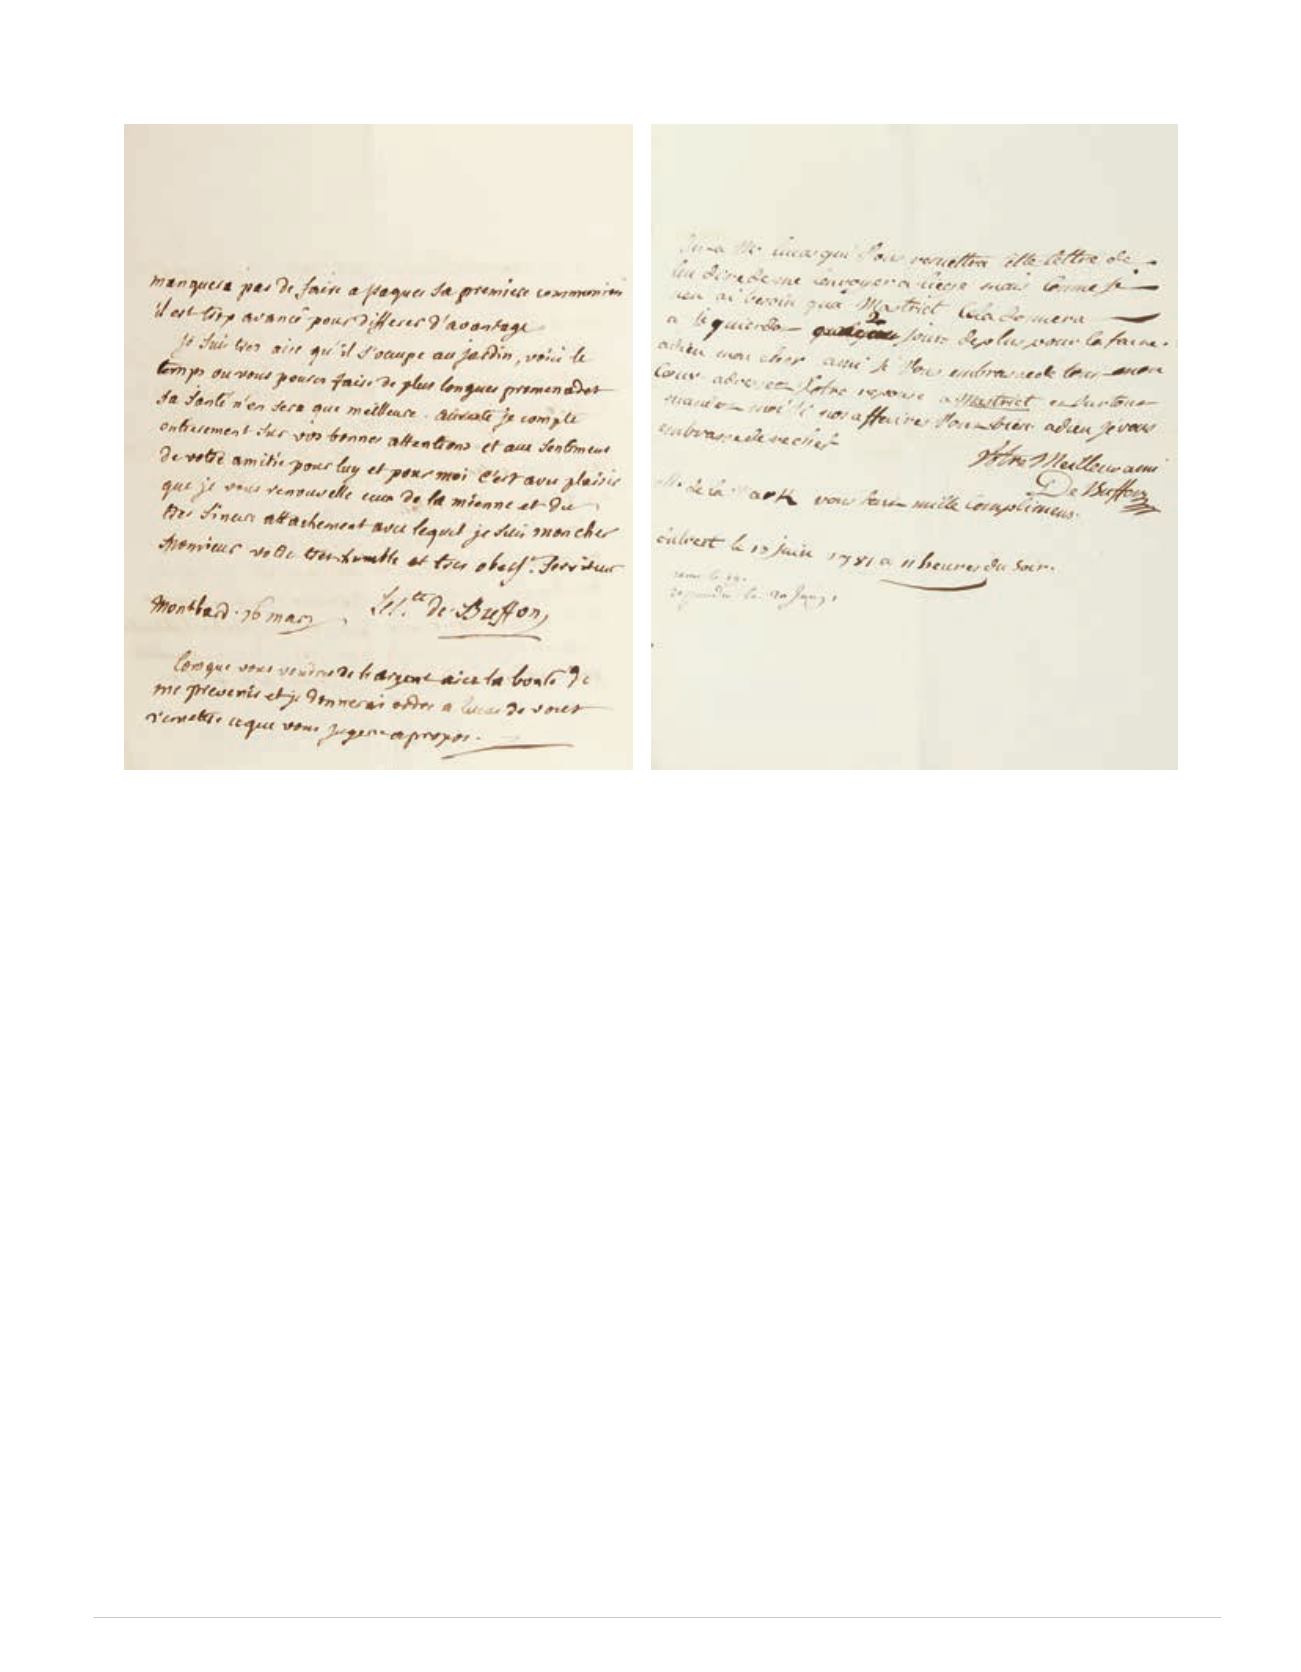 manquera pas de faire a paques sa premiere communion
il est trop avancé pour differer d'avantage
je suis tres aise qu'il s'ocupe au jardin, voici le
temps ou vous pourés faire de plus longues promenades
sa santé n'en sera que meilleure. aureste je compte
entierement sur vos bonnes attentions et aux sentimens
de votre amitié pour luy et pour moi c'est avec plaisir
que je vous renouvelle ceux de la mienne et du
tres sincere attachement avec lequel je suis mon cher
Monsieur votre tres humble et tres obeiss.t Serviteur
Montbard 26 mars Le C.te de Buffon
lorsque vous voudrez de l'argent aiez la bonté de
me prevenir et je donnerai ordre a lucas de vous
remettre ce que vous jugerez apropos.
Mr lucas qui vous remettra cette lettre de
lui dire de me l'envoyer a liege mais comme je
n'en ai besoin qu'a Mastrict cela donnera
a 2 jours de plus pour la faire.
adieu mon cher ami je vous embrasse de tout mon
coeur adressez votre reponse a Mastrict et surtout
mandez moi si nos affaires vont bien adieu je vous
embrasse de rechef
Votre Meilleur ami
De Buffon
de la Mark vous fait mille complimens.
le 17 juin 1781 a 11 heures du soir.
repondu le 20 Juin,